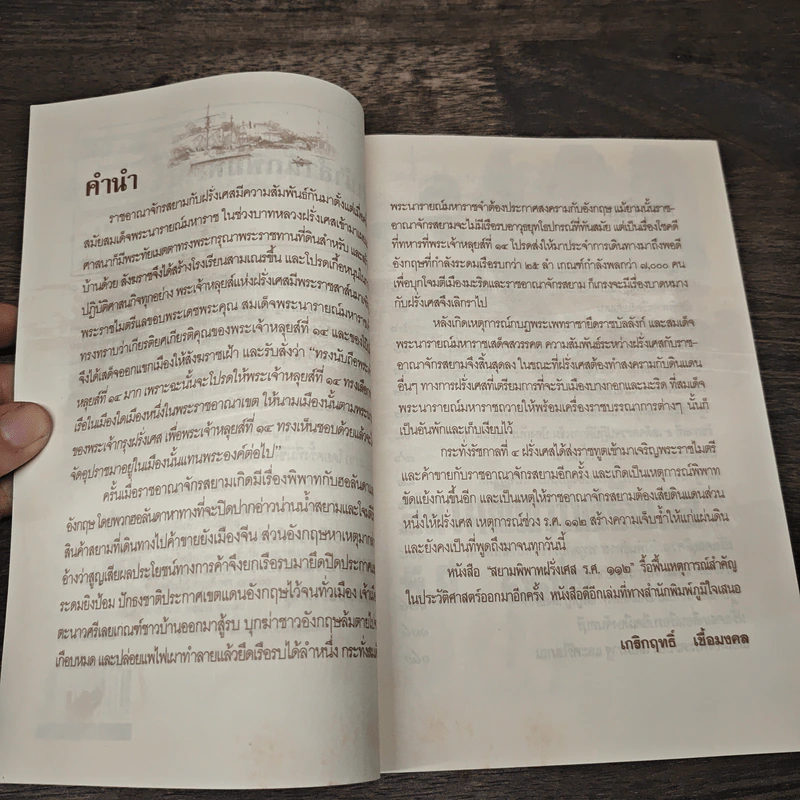 คำนำ
ราชอาณาจักรสยามกับฝรั่งเศสมีความสัมพันธ์กันมาตั้งแต่เมื่อ
สมัยสมเด็จพระนารายณ์มหาราช ในช่วงบาทหลวงฝรั่งเศสเข้ามา
ศาสนาก็มีพระทัยเมตตาทรงพระกรุณาพระราชทานที่ดินสำหรับ และ
บ้านด้วย สังฆราชจึงได้สร้างโรงเรียนสามเณรขึ้น และโปรดเกื้อหนุน
ปฏิบัติศาสนกิจทุกอย่าง พระเจ้าหลุยส์แห่งฝรั่งเศสมีพระราชสาส์นมา
พระราชไมตรีแลขอบพระเดชพระคุณ สมเด็จพระนารายณ์มหาราช
ทรงทราบว่าเกียรติยศเกียรติคุณของพระเจ้าหลุยส์ที่ ๑๔ และของ
จึงได้เสด็จออกแขกเมืองให้สังฆราชเฝ้า และรับสั่งว่า "ทรงนับถือพระ
หลุยส์ที่ ๑๔ มาก เพราะฉะนั้นจะโปรดให้พระเจ้าหลุยส์ที่ ๑๔ ทรงเลือก
เรือในเมืองใดเมืองหนึ่งในพระราชอาณาเขต ให้นามเมืองนั้นตามพระ
ของพระเจ้ากรุงฝรั่งเศส เพื่อพระเจ้าหลุยส์ที่ ๑๔ ทรงเห็นชอบด้วยแล้ว
จัดอุปราชมาอยู่ในเมืองนั้นแทนพระองค์ต่อไป"
ครั้นเมื่อราชอาณาจักรสยามเกิดมีเรื่องพิพาทกับฮอลันดา
อังกฤษ โดยพวกฮอลันดาหาทางที่จะปิดปากอ่าวน่านน้ำสยามและ
สินค้าสยามที่เดินทางไปค้าขายยังเมืองจีน ส่วนอังกฤษหาเหตุมา
อ้างว่าสูญเสียผลประโยชน์ทางการค้าจึงยกเรือรบมายึดปิดประกาศ
ระดมยิงป้อม ปักธงชาติประกาศเขตแดนอังกฤษไว้จนทั่วเมือง เจ้า
ตะนาวศรีเลยเกณฑ์ชาวบ้านออกมาสู้รบ บุกฆ่าชาวอังกฤษล้มตายไป
เกือบหมด และปล่อยแพไฟเผาทำลายแล้วยึดเรือรบได้ลำหนึ่ง กระทั่ง
พระนารายณ์มหาราชจำต้องประกาศสงครามกับอังกฤษ แม้ยามนั้นราช-
อาณาจักรสยามจะไม่มีเรือรบอาวุธยุทโธปกรณ์ที่ทันสมัย แต่เป็นเรื่องโชคดี
ที่ทหารที่พระเจ้าหลุยส์ที่ ๑๔ โปรดส่งให้มาประจำการเดินทางมาถึงพอดี
อังกฤษที่กำลังระดมเรือรบกว่า ๒๕ ลำ เกณฑ์กำลังพลกว่า ๗,๐๐๐ คน
เพื่อบุกโจมตีเมืองมะริดและราชอาณาจักรสยาม ก็เกรงจะมีเรื่องบาดหมาง
กับฝรั่งเศสจึงเลิกราไป
หลังเกิดเหตุการณ์กบฏพระเพทราชายึดราชบัลลังก์ และสมเด็จ
พระนารายณ์มหาราชเสด็จสวรรคต ความสัมพันธ์ระหว่างฝรั่งเศสกับราช-
อาณาจักรสยามจึงสิ้นสุดลง ในขณะที่ฝรั่งเศสต้องทำสงครามกับดินแดน
อื่นๆ ทางการฝรั่งเศสที่เตรียมการที่จะรับเมืองบางกอกและมะริด ที่สมเด็จ
พระนารายณ์มหาราชถวายให้พร้อมเครื่องราชบรรณาการต่างๆ นั้นก็
เป็นอันพักและเก็บเงียบไว้
กระทั่งรัชกาลที่ ๔ ฝรั่งเศสได้ส่งราชทูตเข้ามาเจริญพระราชไมตรี
และค้าขายกับราชอาณาจักรสยามอีกครั้ง และเกิดเป็นเหตุการณ์พิพาท
ขัดแย้งกันขึ้นอีก และเป็นเหตุให้ราชอาณาจักรสยามต้องเสียดินแดนส่วน
หนึ่งให้ฝรั่งเศส เหตุการณ์ช่วง ร.ศ. ๑๑๒ สร้างความเจ็บช้ำให้แก่แผ่นดิน
และยังคงเป็นที่พูดถึงมาจนทุกวันนี้
หนังสือ "สยามพิพาทฝรั่งเศส ร.ศ. ๑๑๒" รื้อฟื้นเหตุการณ์สำคัญ
ในประวัติศาสตร์ออกมาอีกครั้ง หนังสือดีอีกเล่มที่ทางสำนักพิมพ์ภูมิใจเสนอ
เกริกฤทธิ์ เชื้อมงคล